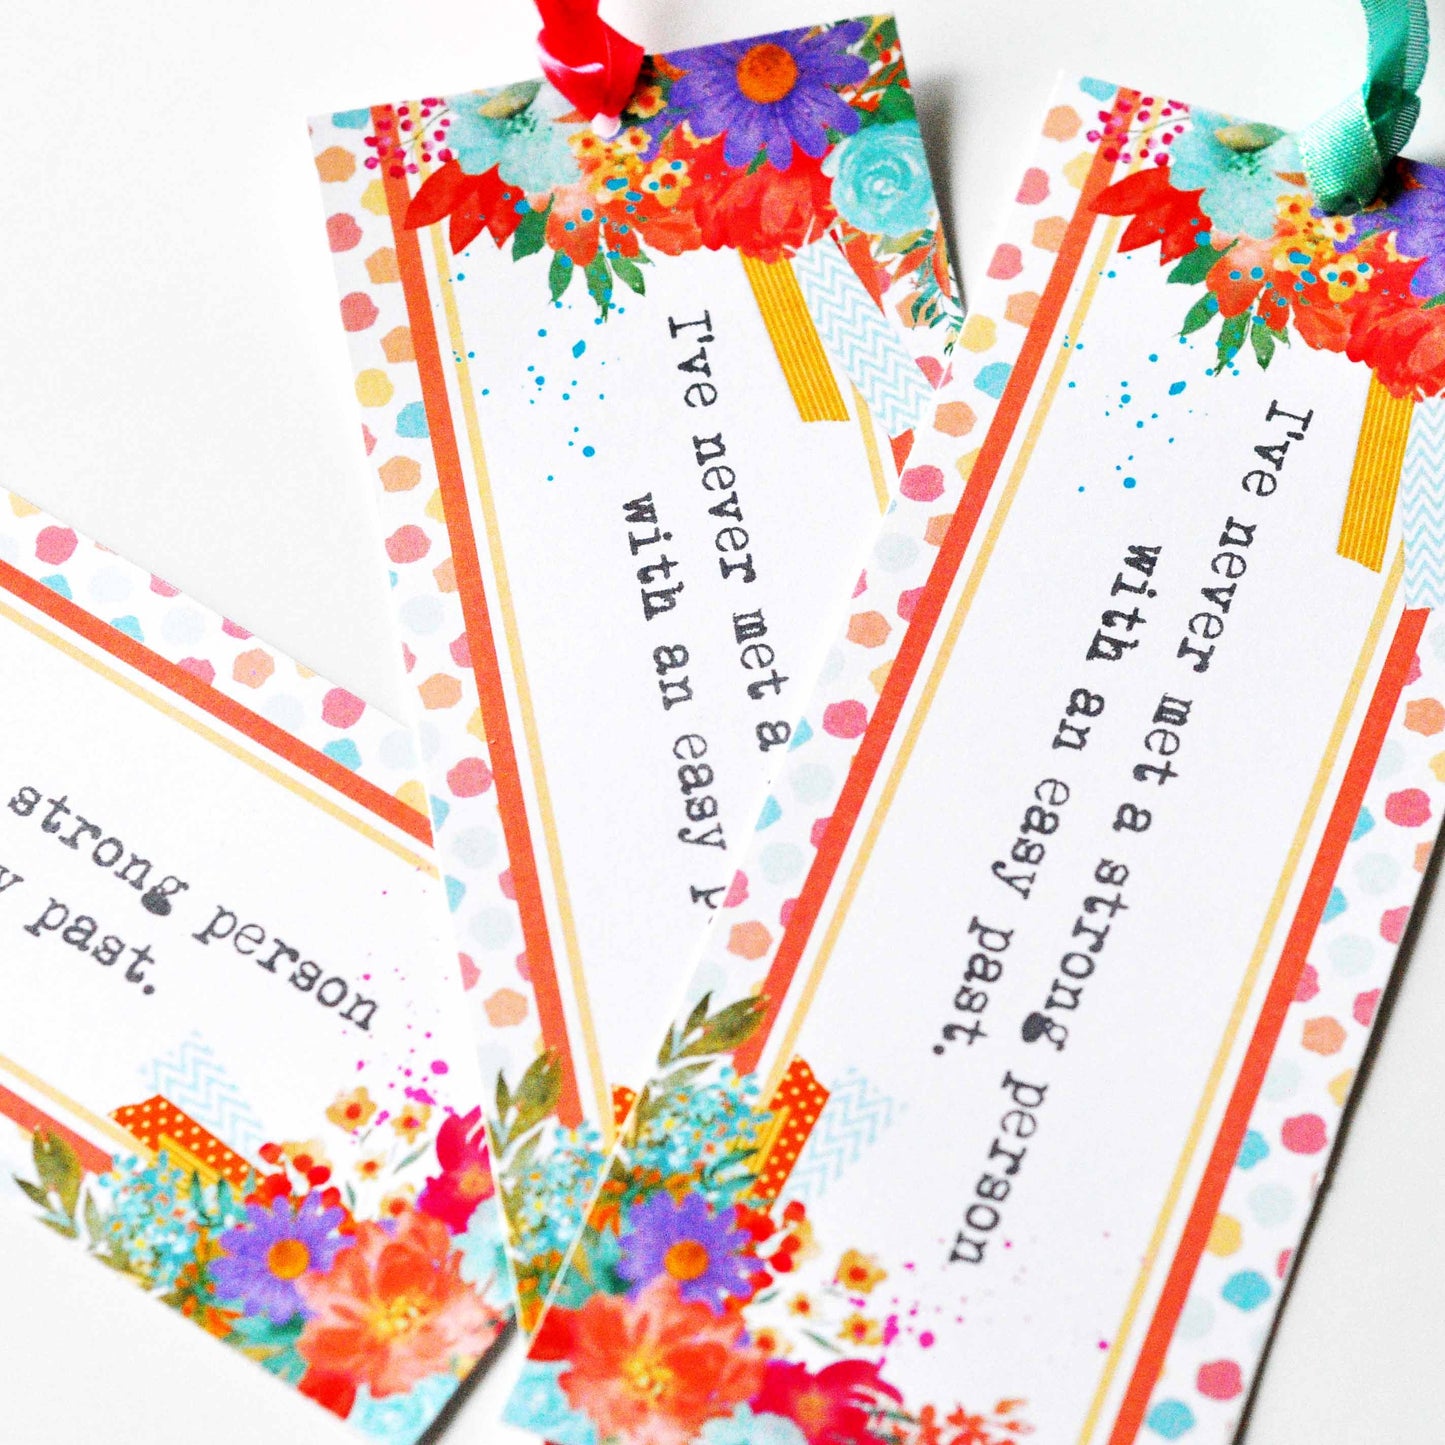 strong person
y past.
I've never met a
with an easy
I've never met a strong person
with an easy past.